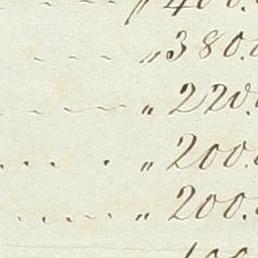 " 400.
" 380.
" 220.
" 200.
" 200.